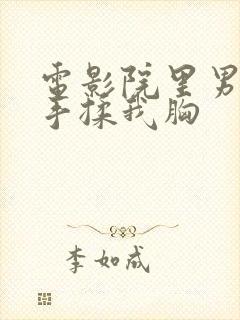 電影院里男
手揉我胸
李如成